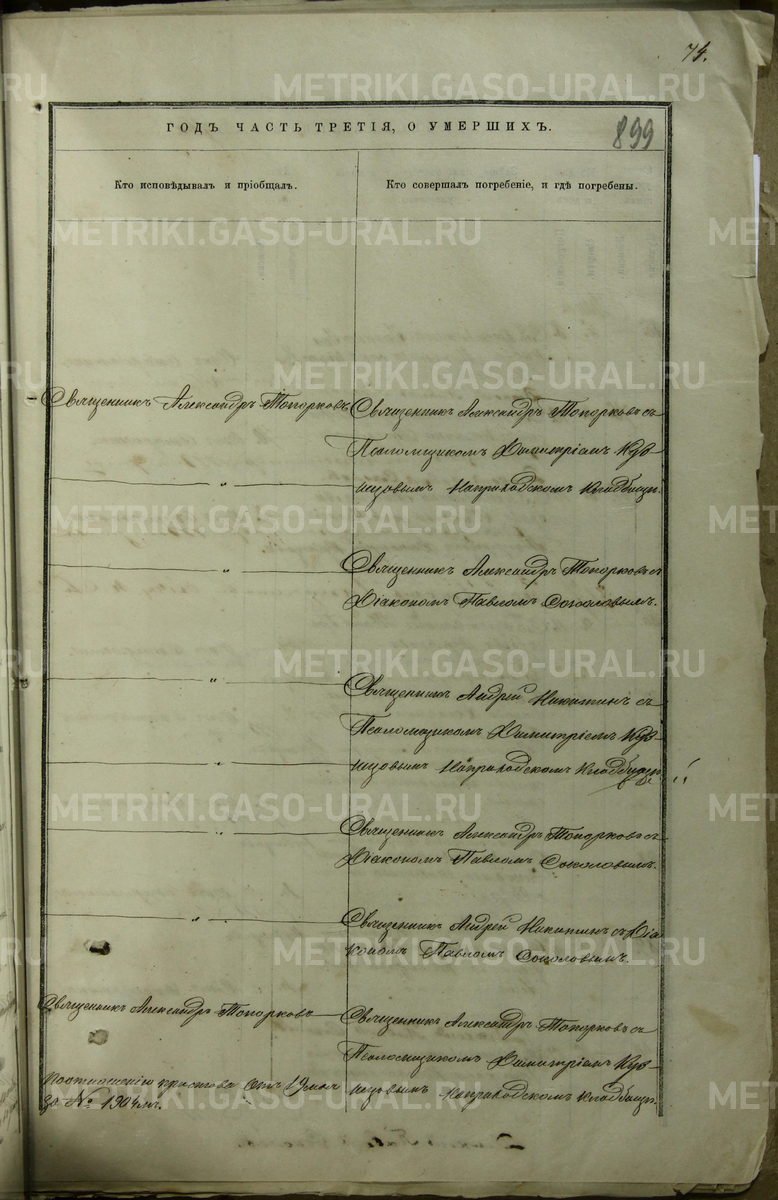 74.
899
ГОДЪ ЧАСТЬ ТРЕТІЯ, О УМЕРШИХЪ.
Кто исповѣдывалъ и пріобщалъ.
Кто совершалъ погребеніе, и гдѣ погребены.
Священникъ Александръ Топорковъ
Священникъ Александръ Топорковъ съ
Псаломщикомъ Димитріемъ Куз-
нецовымъ На приходскомъ кладбищѣ.
"
Священникъ Александръ Топорковъ съ
Діакономъ Павломъ Соколовымъ.
"
Священникъ Андрей Никитинъ съ
Псаломщикомъ Димитріемъ Куз-
нецовымъ На приходскомъ кладбищѣ
"
Священникъ Александръ Топорковъ съ
Діакономъ Павломъ Соколовымъ.
"
Священникъ Андрей Никитинъ съ Діа
кономъ Павломъ Соколовымъ.
"
Священникъ Александръ Топорковъ
Священникъ Александръ Топорковъ съ
Псаломщикомъ Димитріемъ Куз-
нецовымъ на приходскомъ кладбищѣ.
По отношенію пристава отъ 19 мая
за № 1904мъ.
METRIKI.GASO-URAL.RU